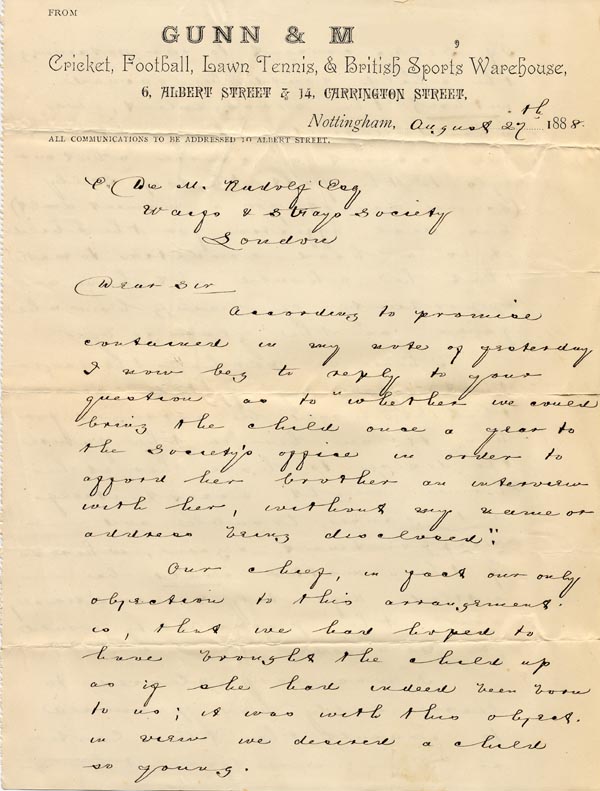 FROM
GUNN & M ,
Cricket, Football, Lawn Tennis, & British Sports Warehouse,
6, ALBERT STREET & 14, CARRINGTON STREET,
Nottingham, August 27th 1888.
ALL COMMUNICATIONS TO BE ADDRESSED TO ALBERT STREET.
E De M. Rudolf Esq
Waifs & Strays Society
London
Dear Sir
According to promise
contained in my note of yesterday
I now beg to reply to your
question as to "whether we could
bring the child once a year to
the Society's office in order to
afford her brother an interview
with her, without my name or
address being disclosed".
Our chief, in fact our only
objection to this arrangement
is, that we had hoped to
have brought the child up
as if she had indeed been born
to us; it was with this object
in view we desired a child
so young.